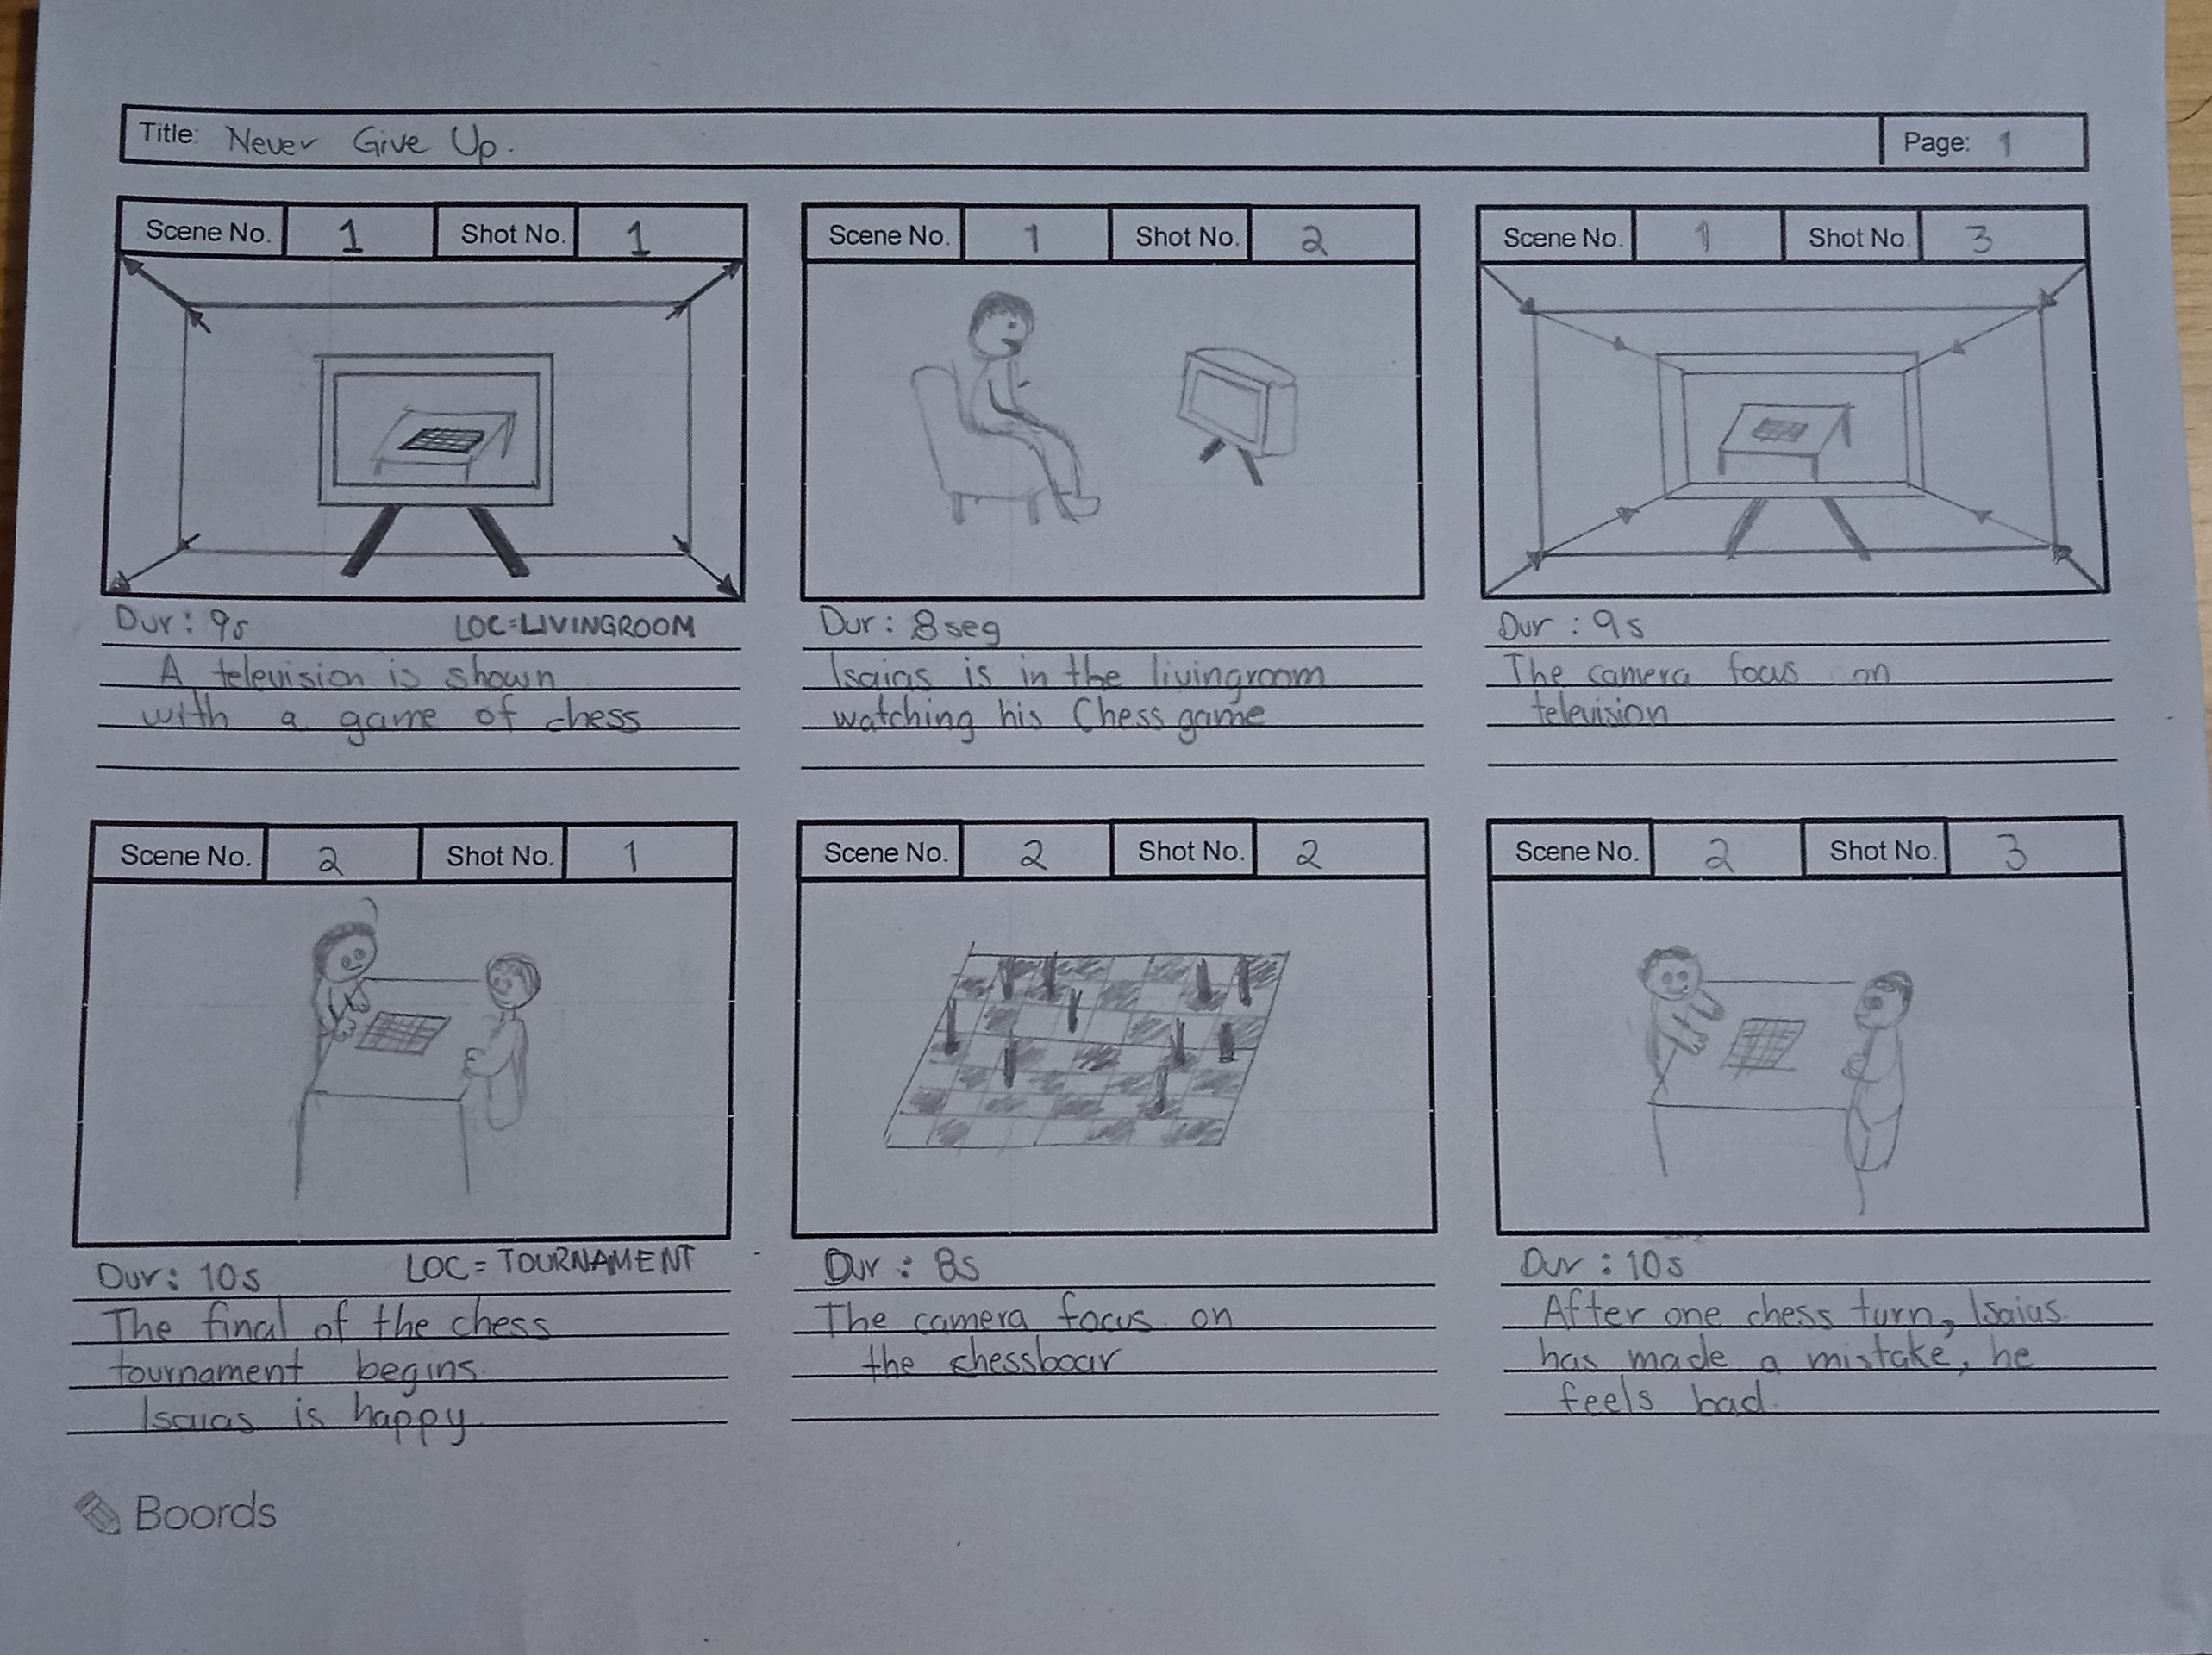 Title: Never Give Up.
Page: 1
Scene No. 1 Shot No. 1
Dur: 9s LOC=LIVINGROOM
A television is shown
with a game of chess
Scene No. 1 Shot No. 2
Dur: 8seg
Isaias is in the livingroom
watching his Chess game
Scene No. 1 Shot No. 3
Dur: 9s
The camera focus on
television
Scene No. 2 Shot No. 1
Dur: 10s LOC= TOURNAMENT
The final of the chess
tournament begins.
Isaias is happy
Scene No. 2 Shot No. 2
Dur: 8s
The camera focus on
the chessboar
Scene No. 2 Shot No. 3
Dur: 10s
After one chess turn, Isaias
has made a mistake, he
feels bad.
Boords